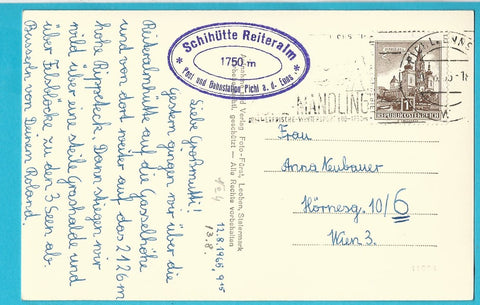 Schihütte Reiteralm
1750 m
Post und Bahnstation Pichl a. d. Enns
12.8.1965, 9¹⁵
13.8.
Liebe Großmutti!
Gestern gingen wir über die
Reiteralmhütte auf die Gasselhöhe
und von dort weiter auf das 2126 m
hohe Rippeteck. Dann stiegen wir
wild über eine steile Grashalde und
über Felsblöcke zu den 3 Seen ab.
Busserln von Deinem Roland.
Verlag Foto-Fürst, Leoben, Steiermark
geschützt — Alle Rechte vorbehalten
MANDLING
REPUBLIK ÖSTERREICH
Frau
Anna Neubauer
Hörnesg. 10/6
Wien 3.